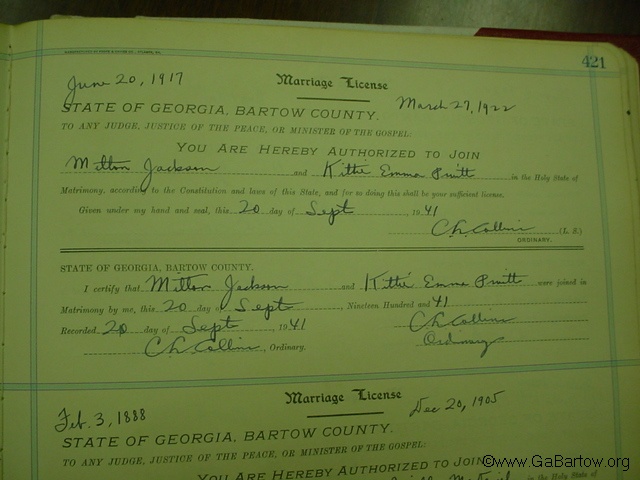 421
June 20, 1917 Marriage License March 27, 1922
STATE OF GEORGIA, BARTOW COUNTY.
TO ANY JUDGE, JUSTICE OF THE PEACE, OR MINISTER OF THE GOSPEL:
YOU ARE HEREBY AUTHORIZED TO JOIN
Milton Jackson and Kittie Emma Pruitt in the Holy State of
Matrimony, according to the Constitution and laws of this State, and for so doing this shall be your sufficient license.
Given under my hand and seal, this 20 day of Sept, 1941
Ch. Collins (L. S.)
ORDINARY.
STATE OF GEORGIA, BARTOW COUNTY.
I certify that Milton Jackson and Kittie Emma Pruitt were joined in
Matrimony by me, this 20 day of Sept Nineteen Hundred and 41
Recorded 20 day of Sept, 1941 Ch Collins
Ch. Collins, Ordinary. Ordinary
Marriage License
Feb. 3, 1888 Dec 20, 1905
STATE OF GEORGIA, BARTOW COUNTY.
TO ANY JUDGE, JUSTICE OF THE PEACE, OR MINISTER OF THE GOSPEL:
YOU ARE HEREBY AUTHORIZED TO JOIN
©www.GaBartow.org